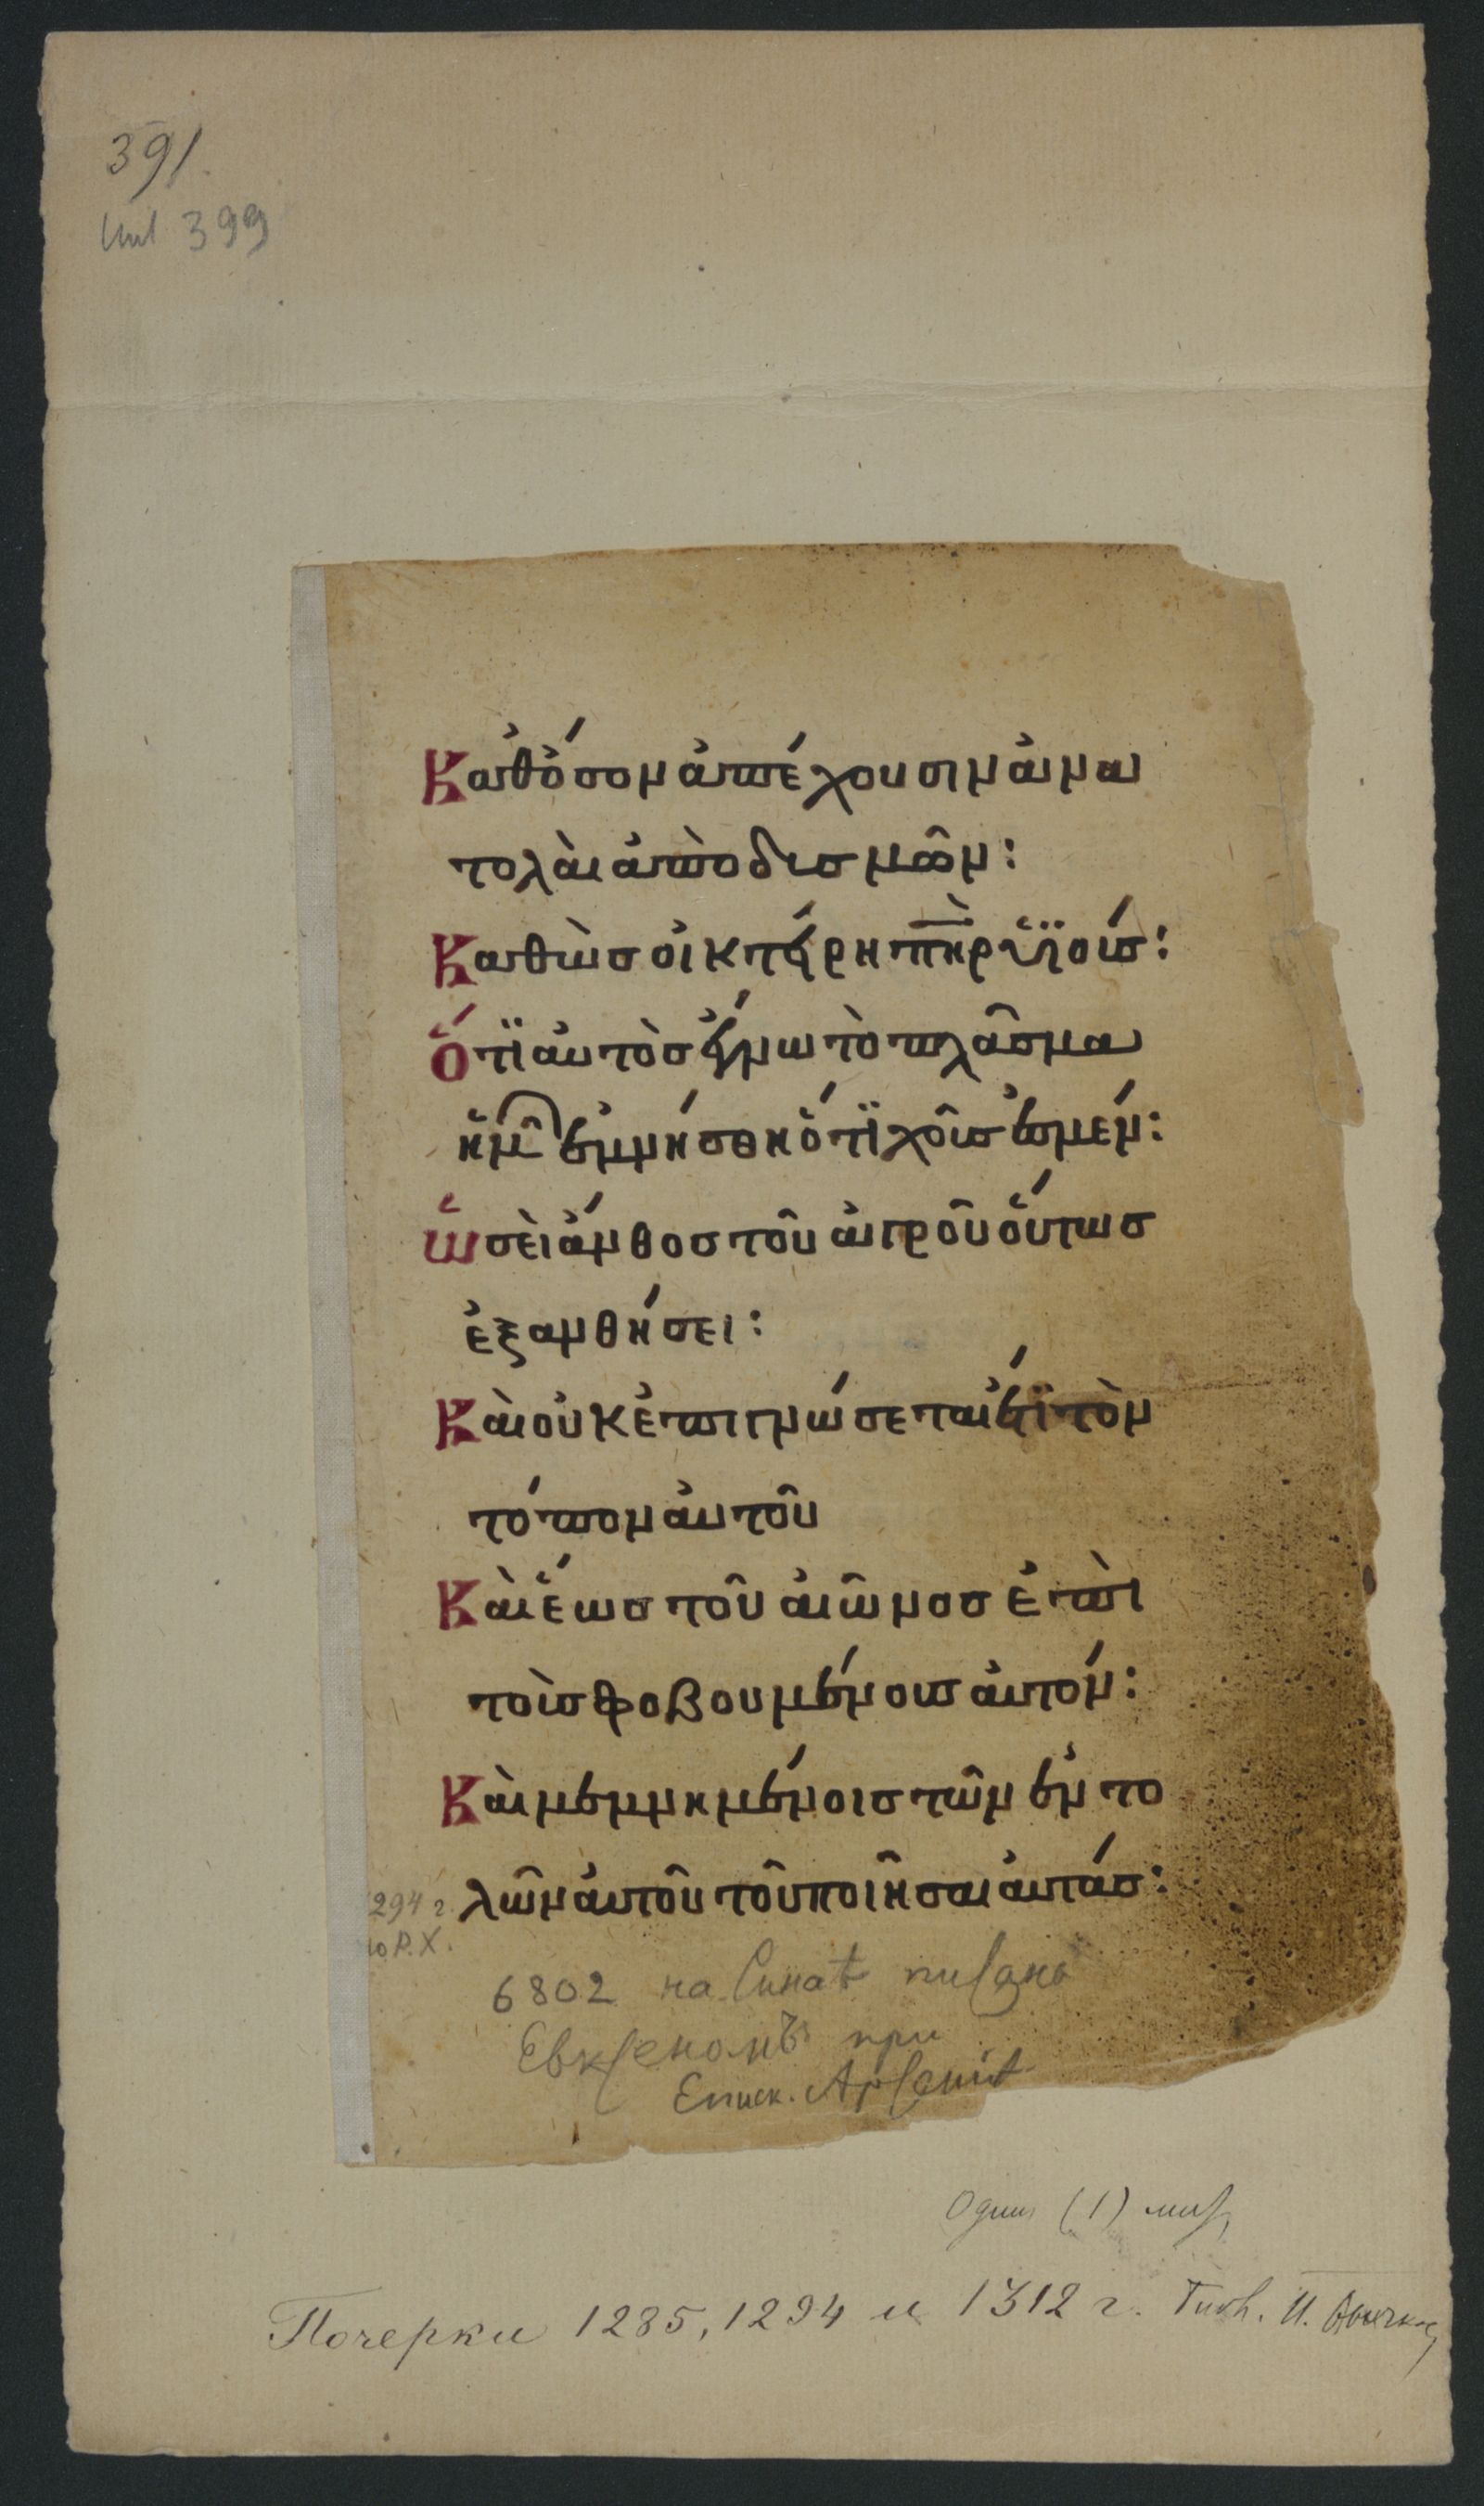 391.
399
Καθόσον ἀπέχουσιν ἀνα
τολαὶ ἀπὸ δυσμῶν:
Καθὼς οἰκτείρη π̅η̅ρ υἱοὺς:
Ὅτϊ αὐτὸς ἔγνω τὸ πλᾶσμα
ἡμῶν ἐμνήσθη ὅτϊ χοῦς ἐσμέν:
Ὡσεὶ ἄνθος τοῦ ἀγροῦ οὕτως
ἐξανθήσει:
Καὶ οὐκ ἐπιγνώσεται ἔτϊ τὸν
τόπον αὐτοῦ
Καὶ ἕως τοῦ αἰῶνος ἐπὶ
τοὺς φοβουμένους αὐτόν:
Καὶ μεμνημένοις τῶν ἐν το
λῶν αὐτοῦ τοῦ ποιῆσαι αὐτάς:
294 г.
по Р. Х.
6802 на Синаѣ писано
Евксеномъ при
Еписк. Арсеніѣ
Один (1) лист
Почерки 1285, 1294 и 1312 г.